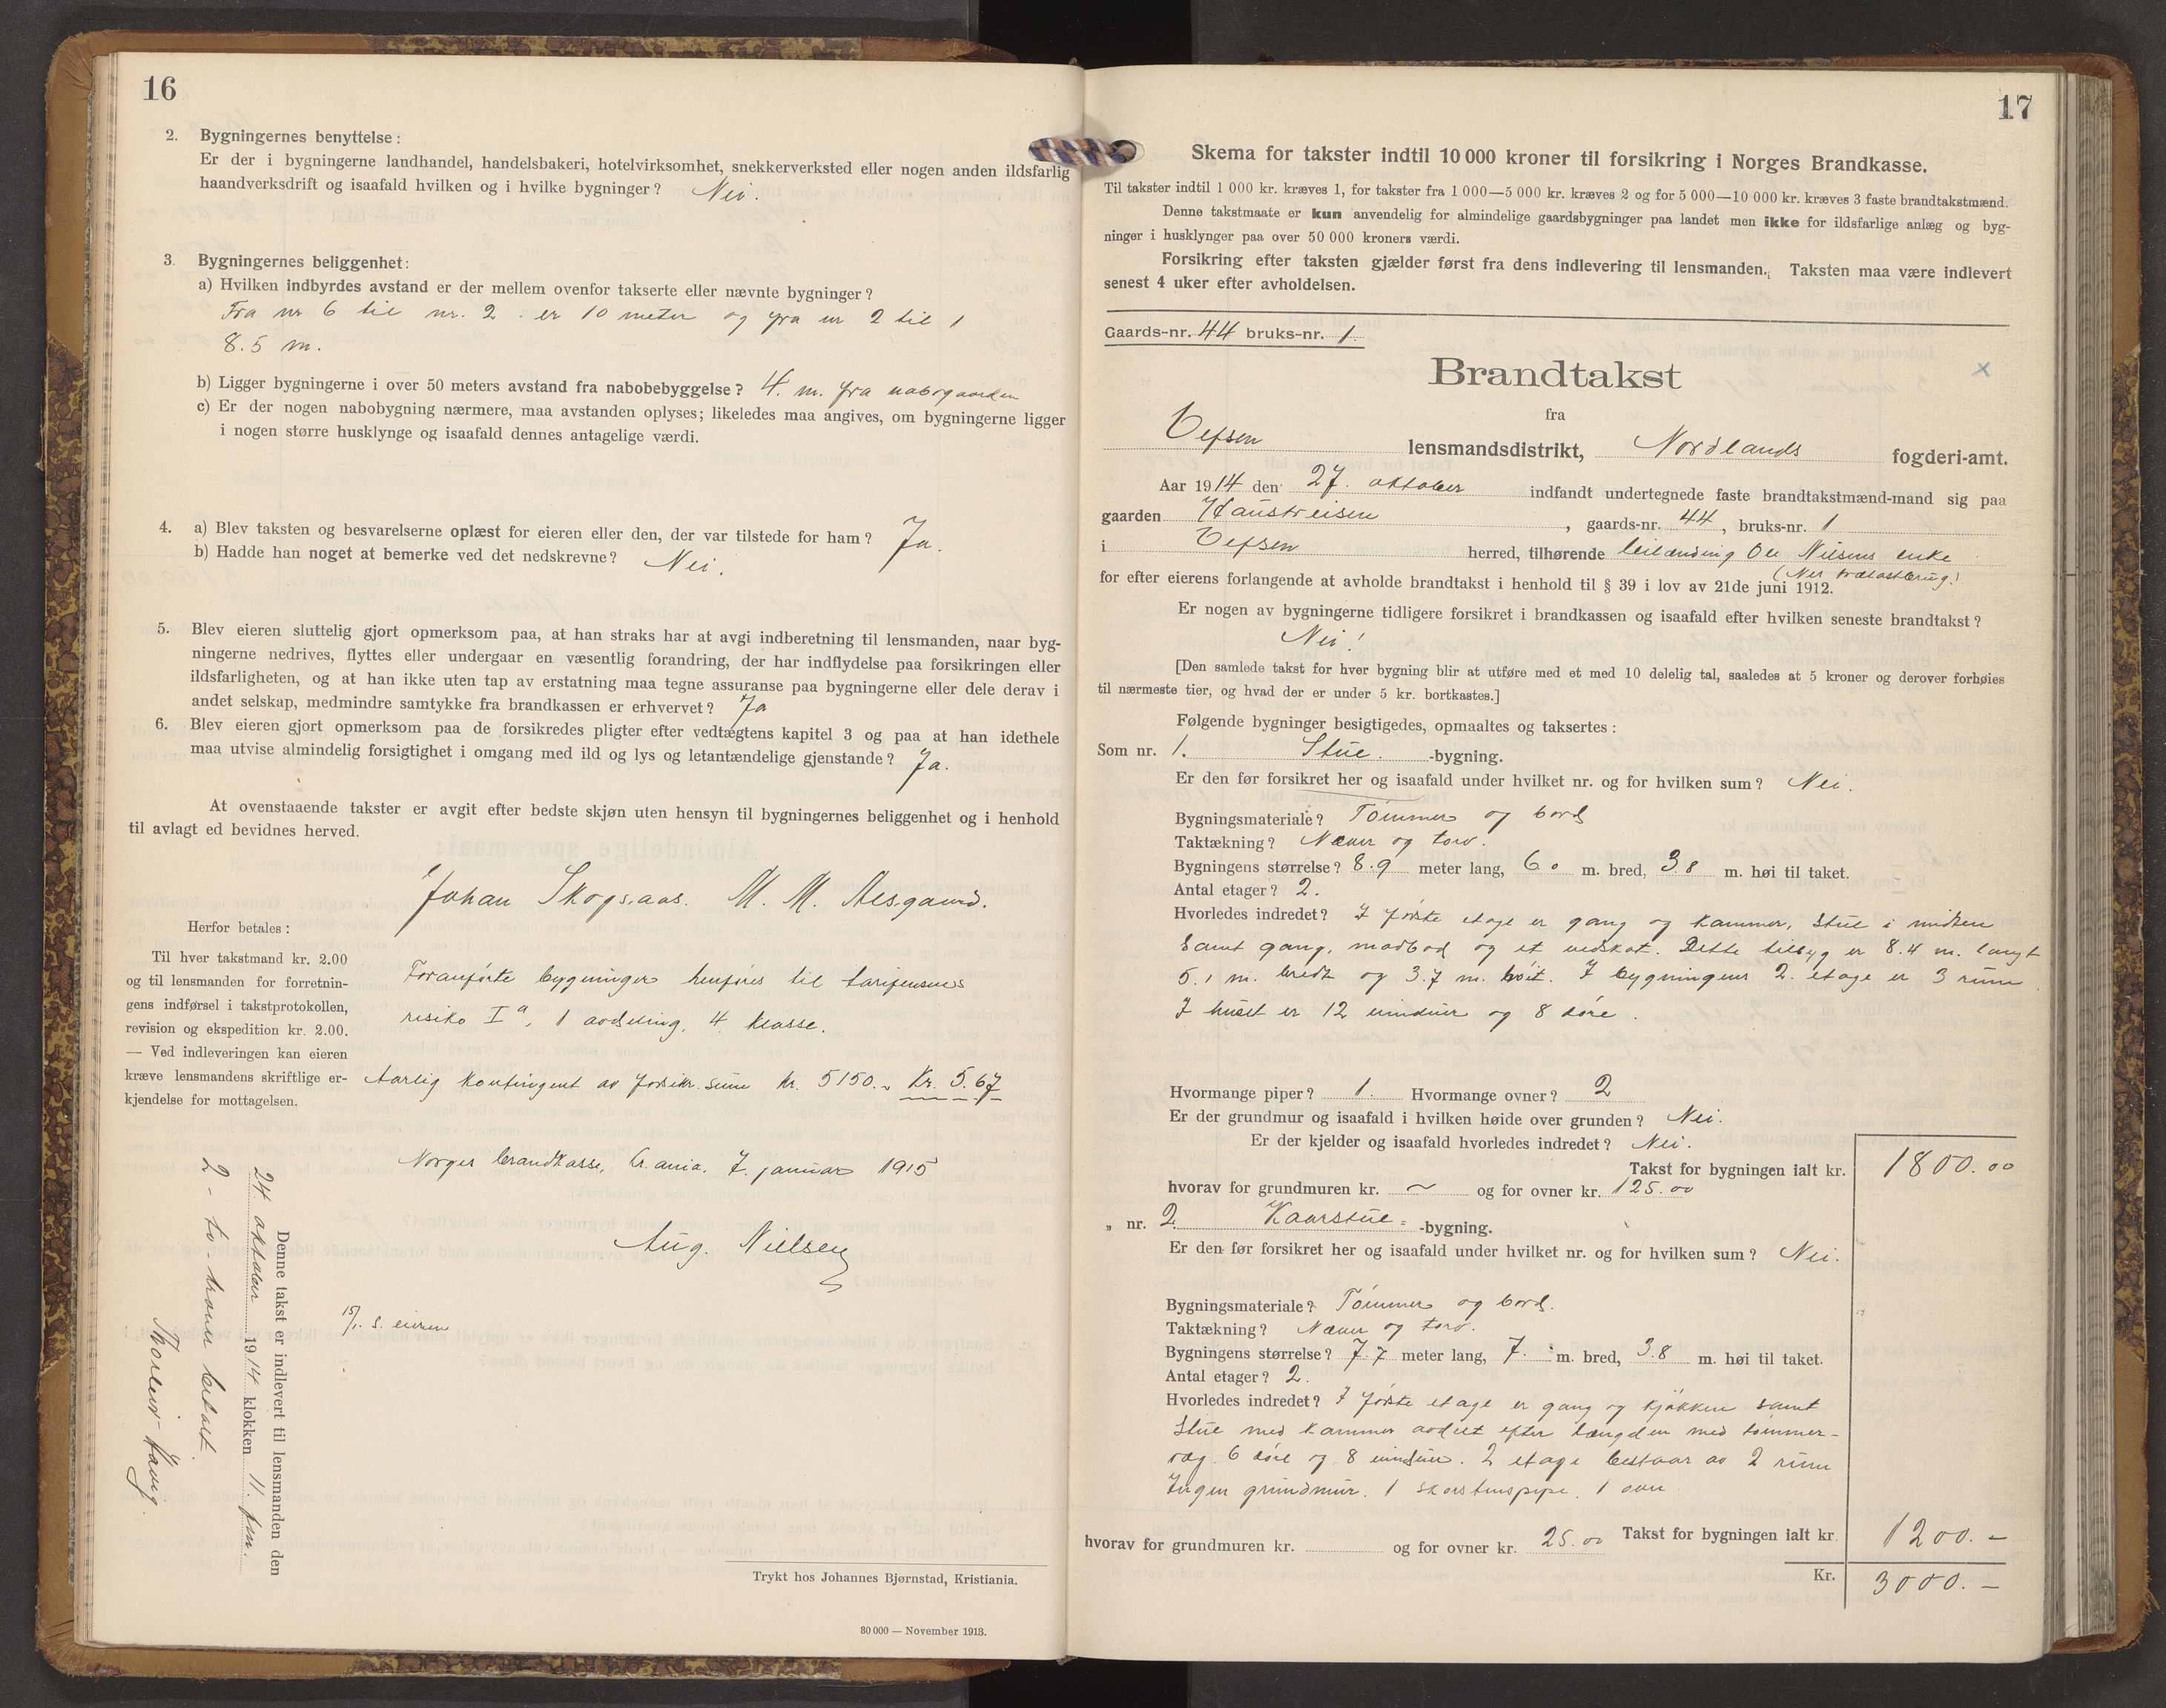 16
2. Bygningernes benyttelse:
Er der i bygningerne landhandel, handelsbakeri, hotelvirksomhet, snekkerverksted eller nogen anden ildsfarlig
haandverksdrift og isaafald hvilken og i hvilke bygninger? Nei.
3. Bygningernes beliggenhet:
a) Hvilken indbyrdes avstand er der mellem ovenfor takserte eller nævnte bygninger?
Fra nr 6 til nr. 2 er 10 meter og fra nr 2 til 1
8.5 m.
b) Ligger bygningerne i over 50 meters avstand fra nabobebyggelse? 4. m. fra nabogaarden
c) Er der nogen nabobygning nærmere, maa avstanden oplyses; likeledes maa angives, om bygningerne ligger
i nogen større husklynge og isaafald dennes antagelige værdi.
4. a) Blev taksten og besvarelserne oplæst for eieren eller den, der var tilstede for ham? Ja.
b) Hadde han noget at bemerke ved det nedskrevne? Nei.
5. Blev eieren sluttelig gjort opmerksom paa, at han straks har at avgi indberetning til lensmanden, naar byg-
ningerne nedrives, flyttes eller undergaar en væsentlig forandring, der har indflydelse paa forsikringen eller
ildsfarligheten, og at han ikke uten tap av erstatning maa tegne assuranse paa bygningerne eller dele derav i
andet selskap, medmindre samtykke fra brandkassen er erhvervet? Ja
6. Blev eieren gjort opmerksom paa de forsikredes pligter efter vedtægtens kapitel 3 og paa at han idethele
maa utvise almindelig forsigtighet i omgang med ild og lys og letantændelige gjenstande? Ja.
At ovenstaaende takster er avgit efter bedste skjøn uten hensyn til bygningernes beliggenhet og i henhold
til avlagt ed bevidnes herved.
Johan Skogsaas. M. M. Alsgaard.
Herfor betales:
Til hver takstmand kr. 2.00
og til lensmanden for forretnin-
gens indførsel i takstprotokollen,
revision og ekspedition kr. 2.00.
— Ved indleveringen kan eieren
kræve lensmandens skriftlige er-
kjendelse for mottagelsen.
Foranførte bygninger henføres til tariffensens
risiko Iª, 1 avdeling, 4. klasse.
Aarlig kontingent av forsikr. sum kr. 5150.- Kr. 5.67
Norges brandkasse, Kr.ania. 7. januar 1915
Aug. Nielsen
15/1. s. eieren
Denne takst er indlevert til lensmanden den
24 oktober 1914 klokken 11. fm.
2 - to - kroner betalt.
Thorleif Haug.
Trykt hos Johannes Bjørnstad, Kristiania.
30 000 — November 1913.
17
Skema for takster indtil 10 000 kroner til forsikring i Norges Brandkasse.
Til takster indtil 1 000 kr. kræves 1, for takster fra 1 000—5 000 kr. kræves 2 og for 5 000—10 000 kr. kræves 3 faste brandtakstmænd.
Denne takstmaate er kun anvendelig for almindelige gaardsbygninger paa landet men ikke for ildsfarlige anlæg og byg-
ninger i husklynger paa over 50 000 kroners værdi.
Forsikring efter taksten gjælder først fra dens indlevering til lensmanden. Taksten maa være indlevert
senest 4 uker efter avholdelsen.
Gaards-nr. 44 bruks-nr. 1.
Brandtakst
x
fra
Vefsen lensmandsdistrikt, Nordlands fogderi-amt.
Aar 1914 den 27. oktober indfandt undertegnede faste brandtakstmænd-mand sig paa
gaarden Haustreisen, gaards-nr. 44, bruks-nr. 1
i Vefsen herred, tilhørende leilænding Ole Nilsens enke
(Nes trælastbrug.)
for efter eierens forlangende at avholde brandtakst i henhold til § 39 i lov av 21de juni 1912.
Er nogen av bygningerne tidligere forsikret i brandkassen og isaafald efter hvilken seneste brandtakst?
Nei!
[Den samlede takst for hver bygning blir at utføre med et med 10 delelig tal, saaledes at 5 kroner og derover forhøies
til nærmeste tier, og hvad der er under 5 kr. bortkastes.]
Følgende bygninger besigtigedes, opmaaltes og taksertes:
Som nr. 1. Stue.-bygning.
Er den før forsikret her og isaafald under hvilket nr. og for hvilken sum? Nei.
Bygningsmateriale? Tømmer og bord
Taktækning? Næver og torv.
Bygningens størrelse? 8.9 meter lang, 6.0 m. bred, 3.8 m. høi til taket.
Antal etager? 2.
Hvorledes indredet? I første etage er gang og kammer, stue i midten
samt gang, madbod og et vedskot. Dette tilbyg er 8.4 m. langt
5.1 m. bredt og 3.7 m. høit. I bygningens 2. etage er 3 rum.
I huset er 12 vinduer og 8 døre.
Hvormange piper? 1. Hvormange ovner? 2
Er der grundmur og isaafald i hvilken høide over grunden? Nei.
Er der kjelder og isaafald hvorledes indredet? Nei.
Takst for bygningen ialt kr. 1800.00
hvorav for grundmuren kr. ~ og for ovner kr. 125.00
„ nr. 2. Kaarstue-bygning.
Er den før forsikret her og isaafald under hvilket nr. og for hvilken sum? Nei.
Bygningsmateriale? Tømmer og bord.
Taktækning? Næver og torv.
Bygningens størrelse? 7.7 meter lang, 7. m. bred, 3.8 m. høi til taket.
Antal etager? 2.
Hvorledes indredet? I første etage er gang og kjøkken samt
stue med kammer avdelt efter længden med tømmer-
væg. 6 døre og 8 vinduer. 2 etage bestaar av 2 rum
Ingen grundmur. 1 skorstenspipe, 1 ovn
Takst for bygningen ialt kr. 1200.-
hvorav for grundmuren kr. og for ovner kr. 25.00
Kr. 3000.-